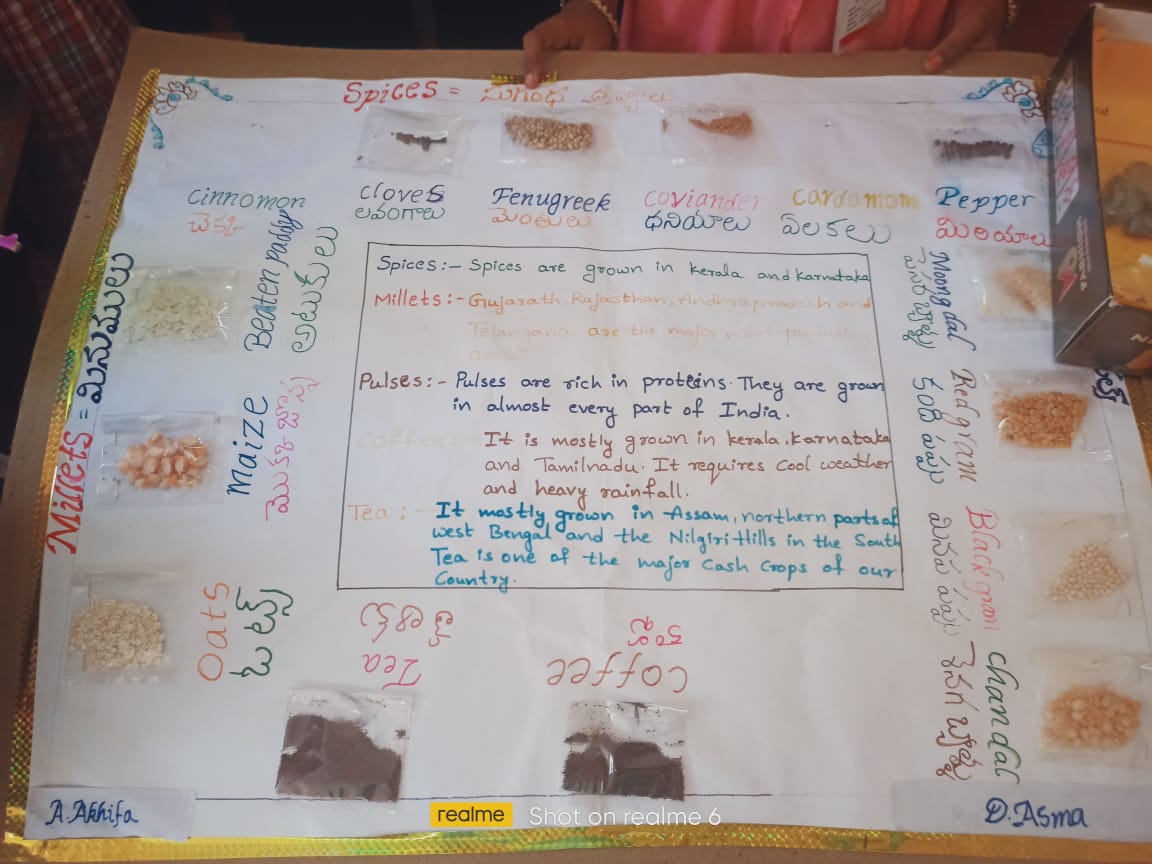 Spices = సుగంధ ద్రవ్యాలు
Cinnomon
చెక్క
Cloves
లవంగాలు
Fenugreek
మెంతులు
Coviander
ధనియాలు
Cardamom
ఏలకలు
Pepper
మిరియాలు
Millets = మినుములు
Beaten paddy
అటుకులు
Maize
మొక్క జొన్న
Oats
ఓట్స్
Spices:- Spices are grown in kerala and karnataka
Millets:- Gujarath, Rajasthan, Andhrapradesh and
Telangana are the major
Pulses:- Pulses are rich in proteins. They are grown
in almost every part of India.
Coffee:- It is mostly grown in kerala, Karnataka
and Tamilnadu. It requires cool weather
and heavy rainfall.
Tea:- It mostly grown in Assam, northern parts of
west Bengal and the Nilgiri Hills in the South
Tea is one of the major cash crops of our
Country.
Moong dal
Red gram
కంది పప్పు
Black gram
మినప పప్పు
chandal
Tea
Coffee
A. Akhifa
D. Asma
realme Shot on realme 6